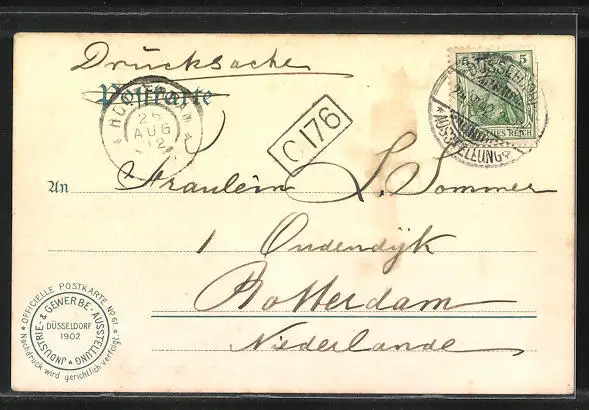 Drucksache
Postkarte
5 5
DEUTSCHES REICH
DÜSSELDORF
AUSSTELLUNG
25
AUG
12
C 176
An Fräulein L. Sommer
1 Oudendijk
Rotterdam
Niederlande
* OFFICIELLE POSTKARTE No 61. *
Nachdruck wird gerichtlich verfolgt.
JNDUSTRIE- & GEWERBE-AUSSTELLUNG *
DÜSSELDORF
1902